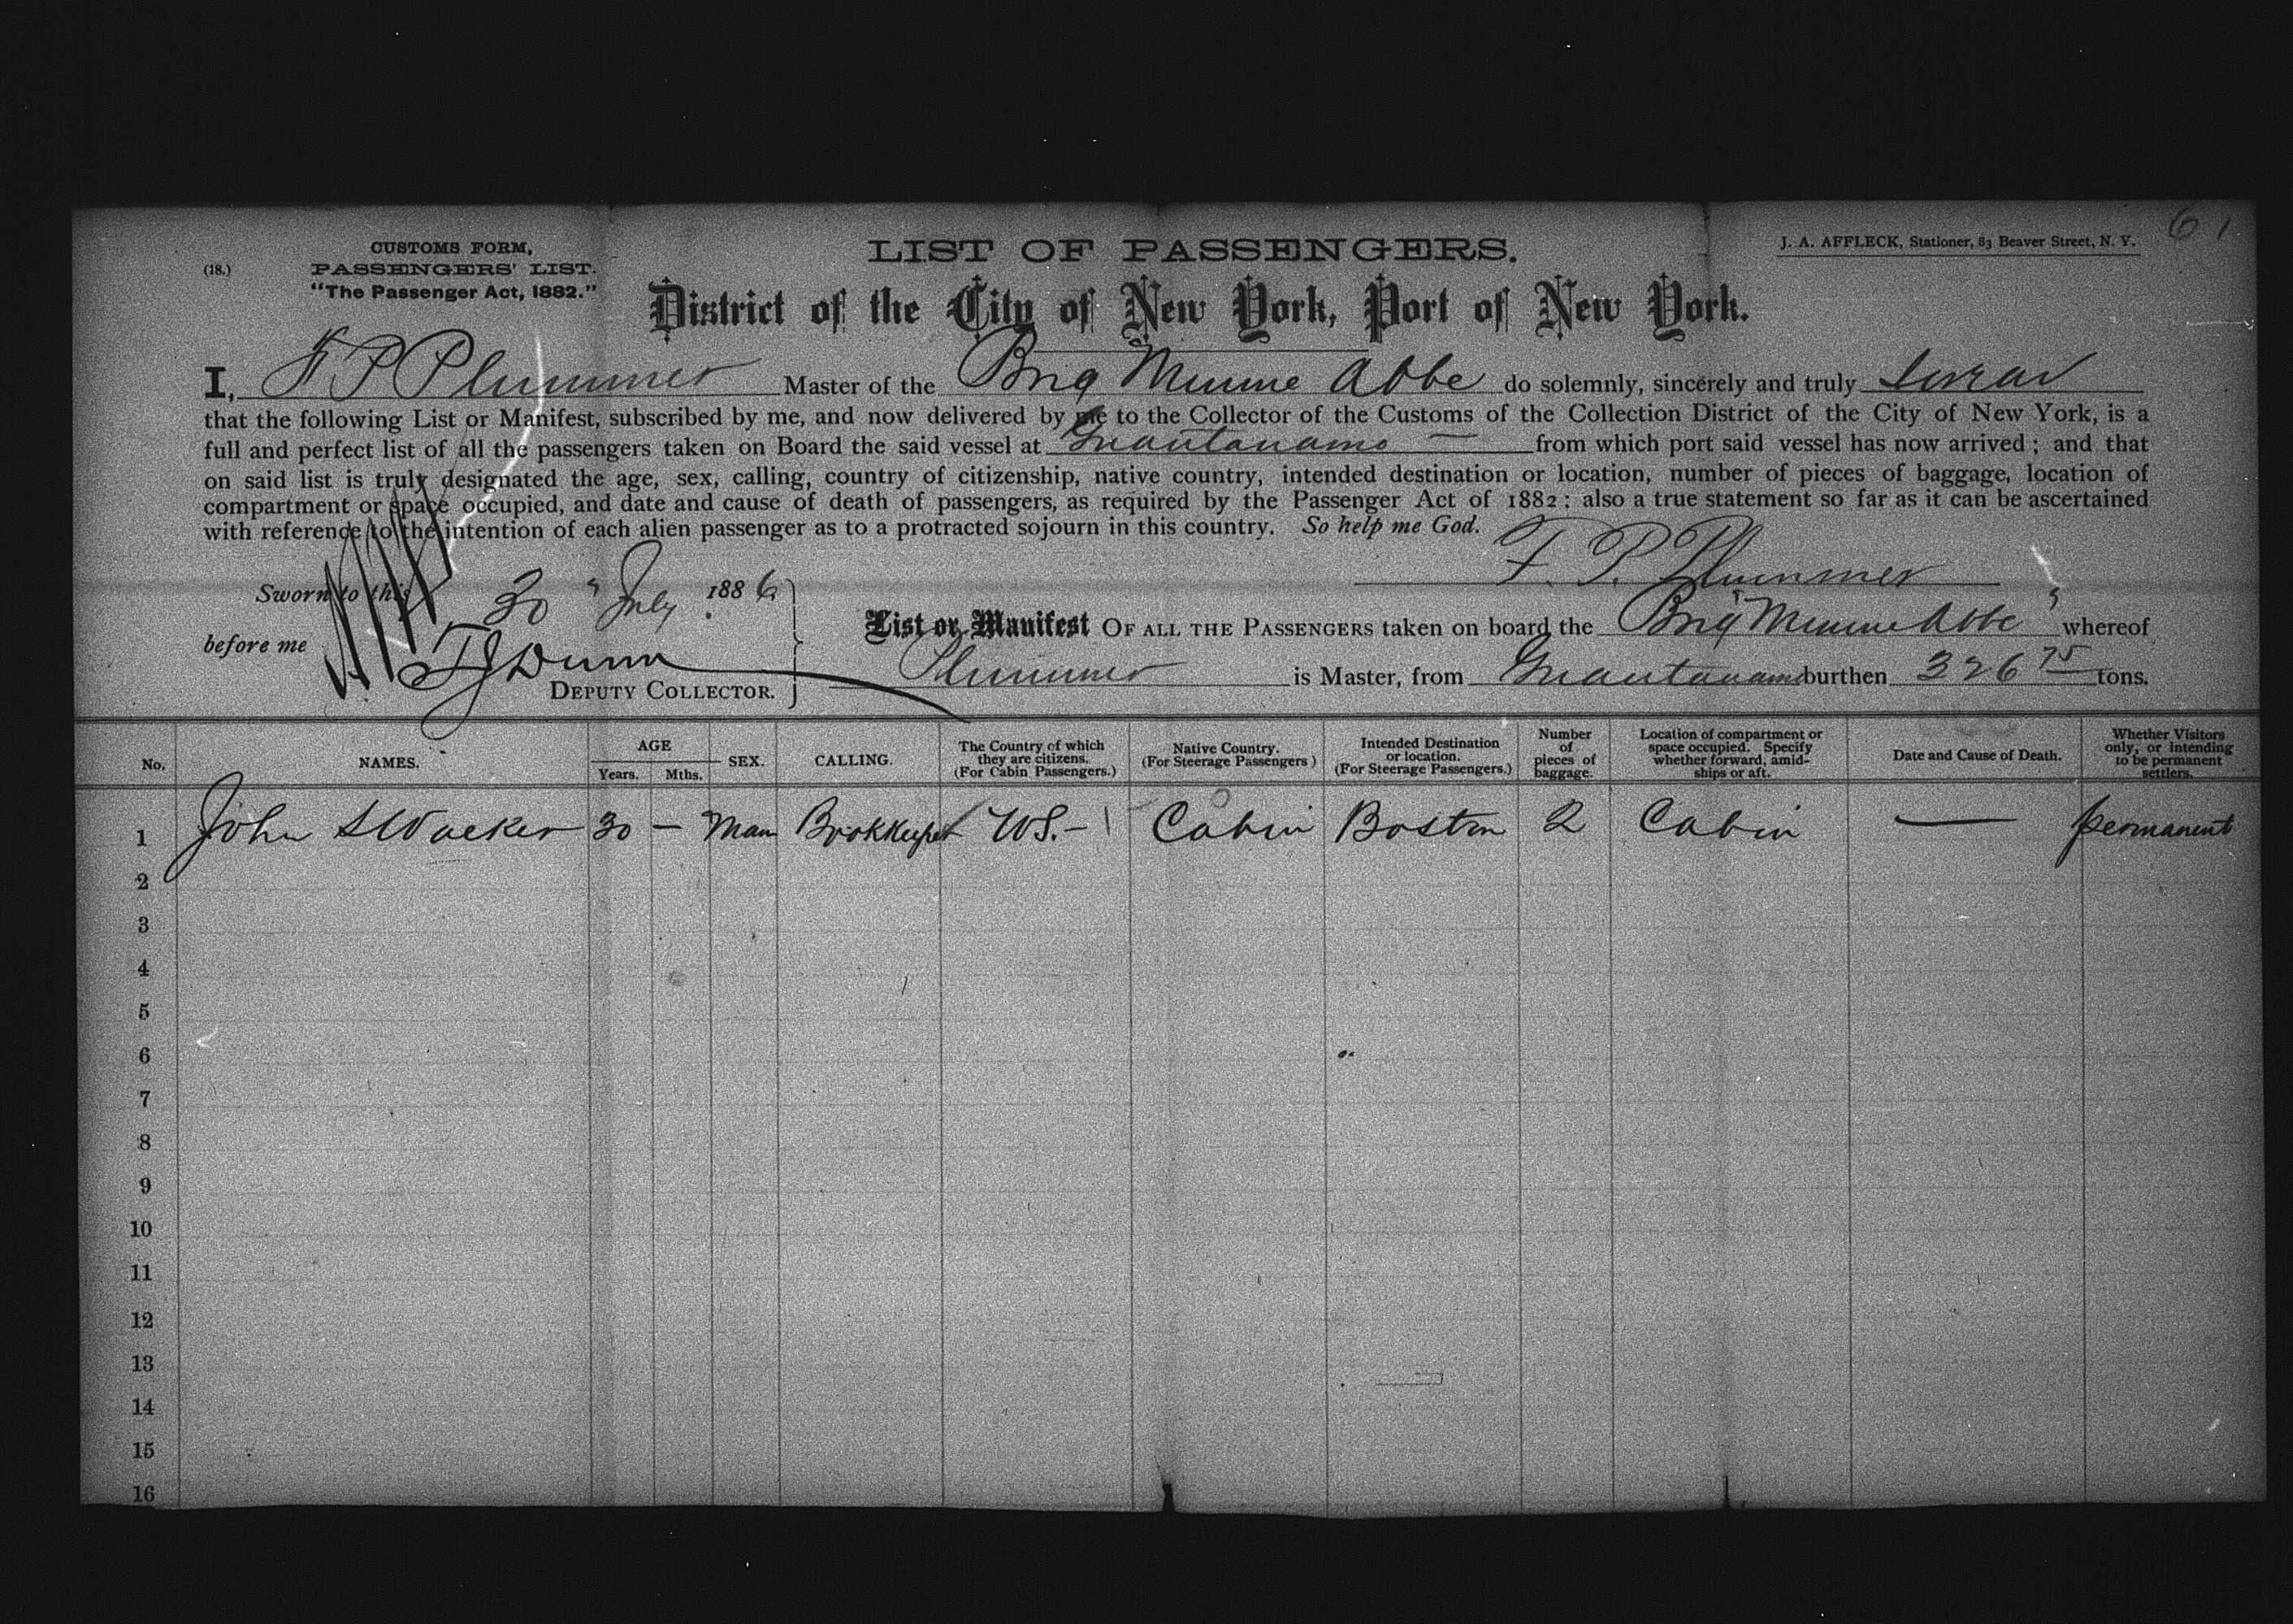 61
CUSTOMS FORM,
(18.) PASSENGERS' LIST.
"The Passenger Act, 1882."
LIST OF PASSENGERS.
J. A. AFFLECK, Stationer, 83 Beaver Street, N. Y.
District of the City of New York, Port of New York.
I, F P Plummer Master of the Brig Minnie Abbe do solemnly, sincerely and truly swear
that the following List or Manifest, subscribed by me, and now delivered by me to the Collector of the Customs of the Collection District of the City of New York, is a
full and perfect list of all the passengers taken on Board the said vessel at Guantanamo — from which port said vessel has now arrived; and that
on said list is truly designated the age, sex, calling, country of citizenship, native country, intended destination or location, number of pieces of baggage, location of
compartment or space occupied, and date and cause of death of passengers, as required by the Passenger Act of 1882; also a true statement so far as it can be ascertained
with reference to the intention of each alien passenger as to a protracted sojourn in this country. So help me God.
F. P. Plummer
Sworn to this 30 " July 1886
before me T J Dunn
DEPUTY COLLECTOR.
List or Manifest OF ALL THE PASSENGERS taken on board the Brig "Minnie Abbe" whereof
Plummer is Master, from Guantanamo burthen 326 75 tons.
No. NAMES. AGE Years. Mths. SEX. CALLING. The Country of which they are citizens. (For Cabin Passengers.) Native Country. (For Steerage Passengers) Intended Destination or location. (For Steerage Passengers.) Number of pieces of baggage. Location of compartment or space occupied. Specify whether forward, amidships or aft. Date and Cause of Death. Whether Visitors only, or intending to be permanent settlers.
1 John S Walker 30 — Man Bookkeeper U.S. — Cabin Boston 2 Cabin — permanent
2
3
4
5
6
7
8
9
10
11
12
13
14
15
16